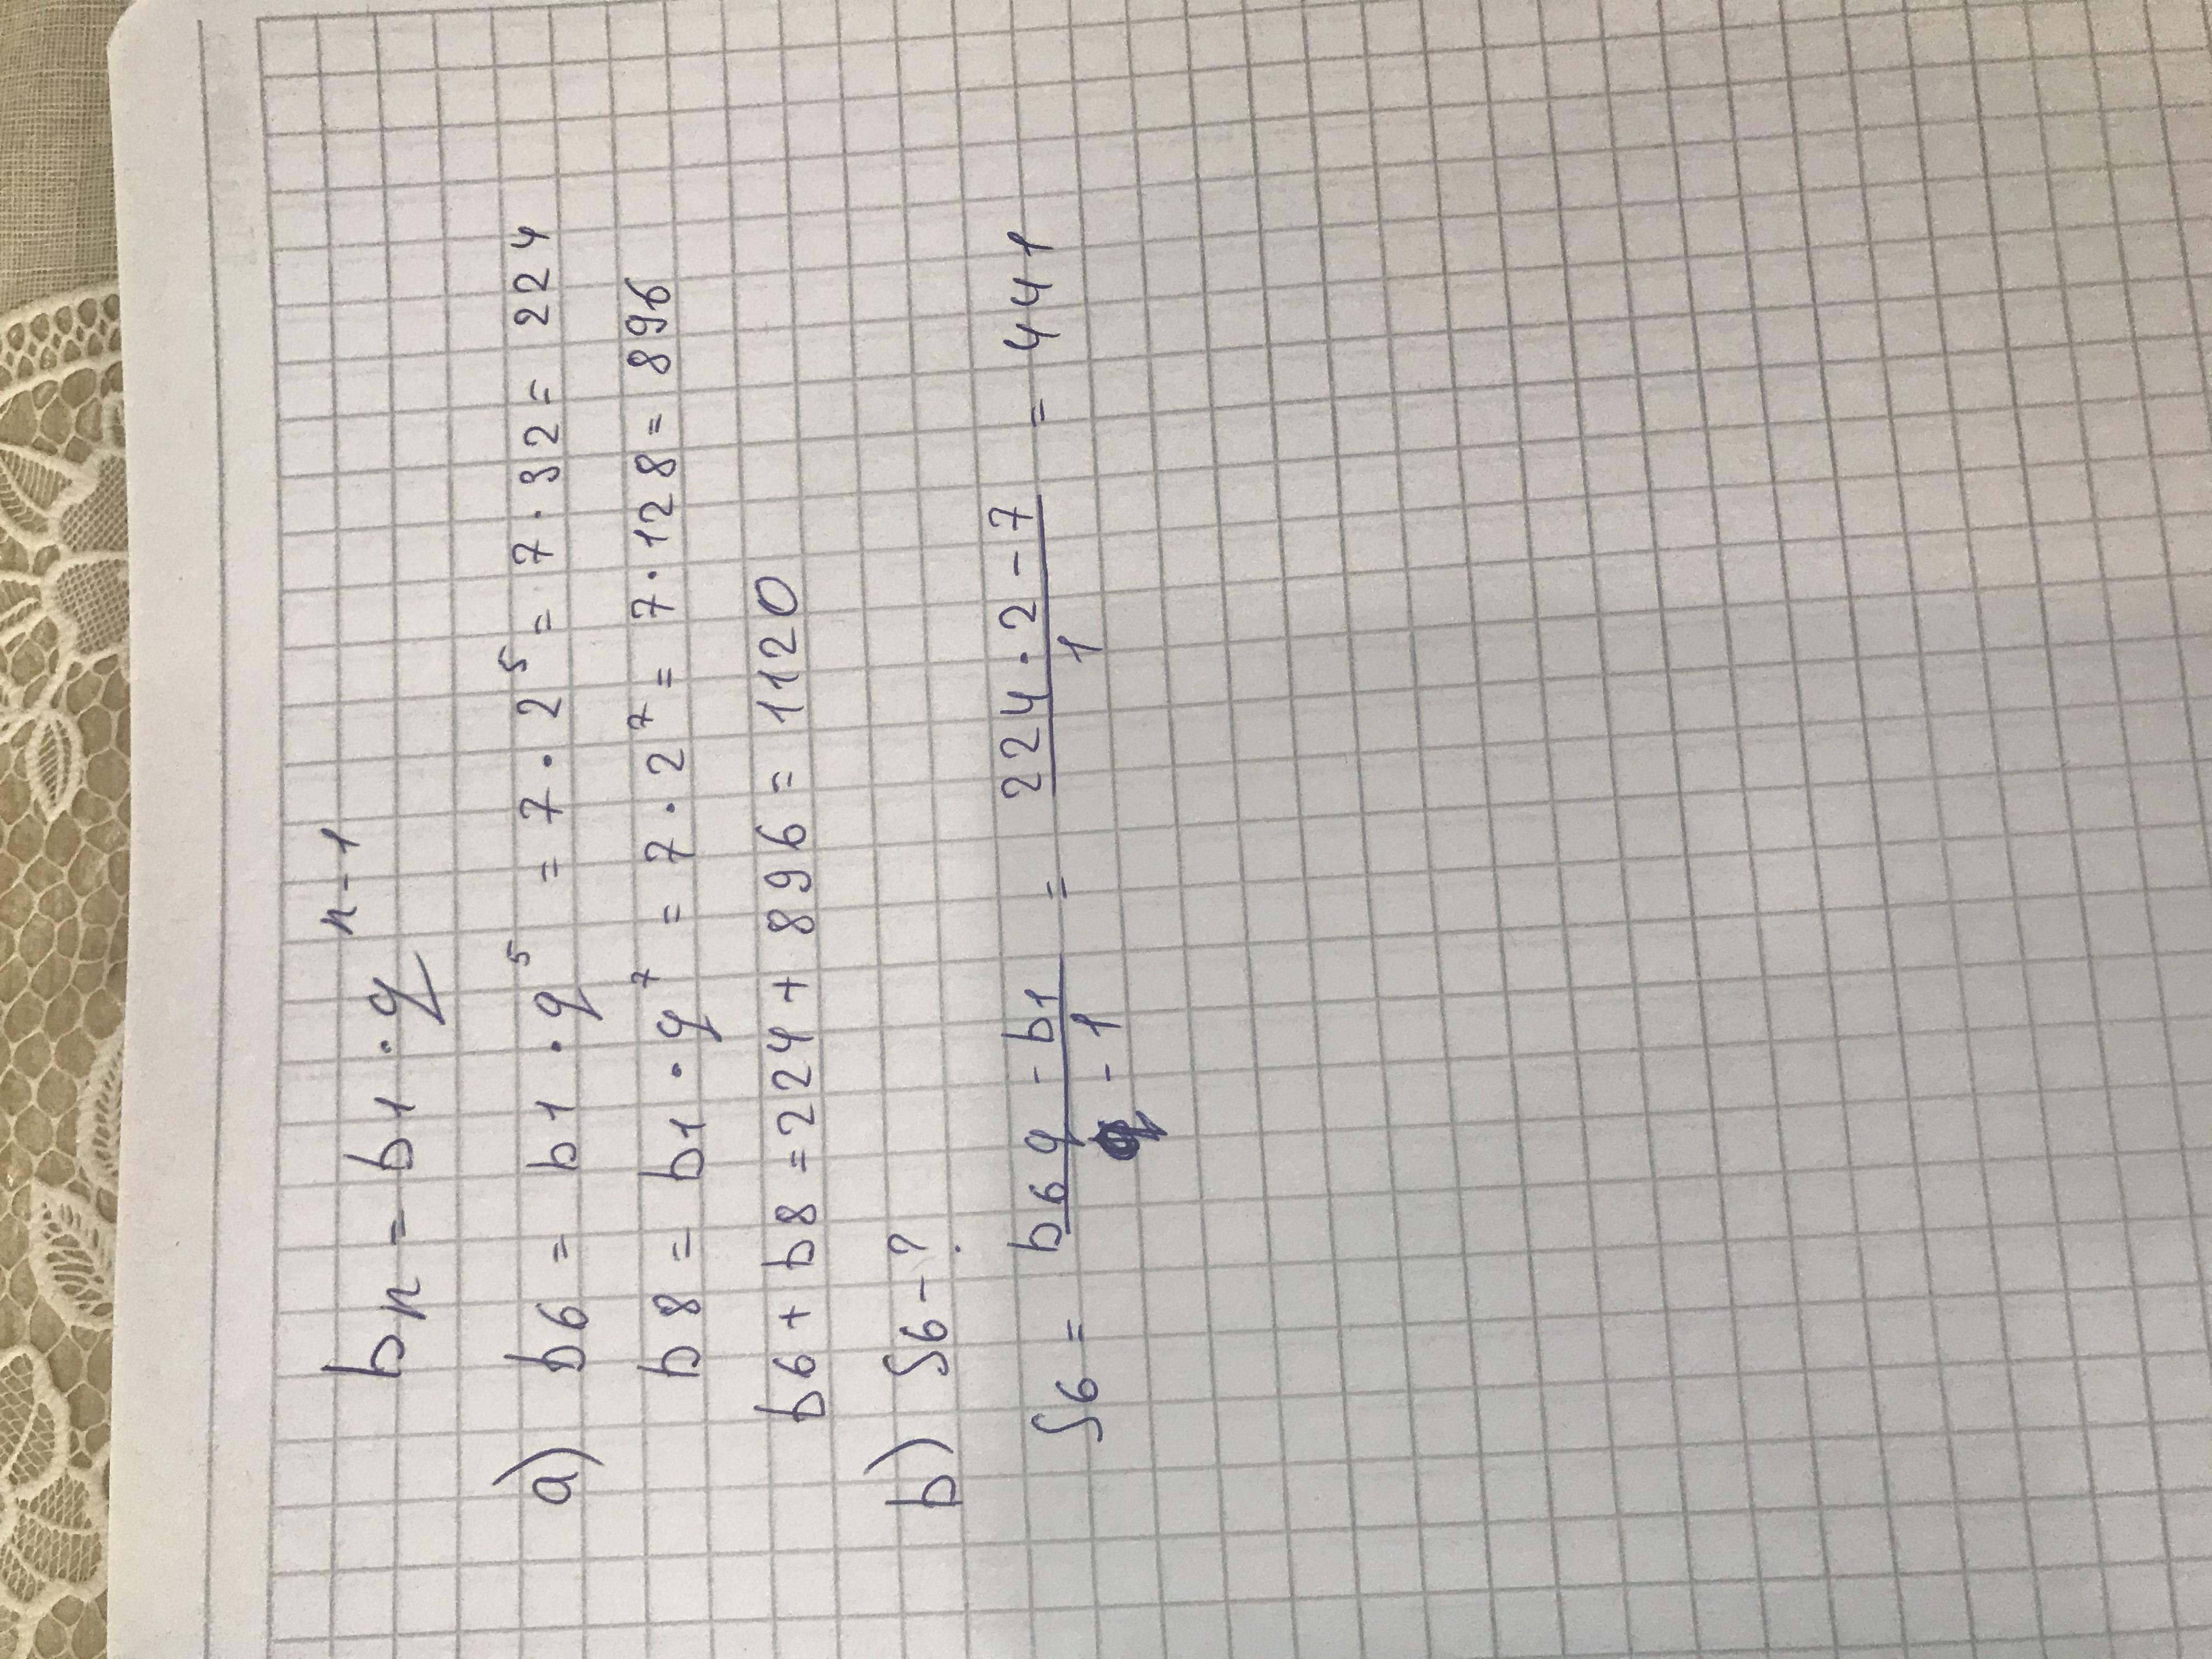 bn = b1 · q^(n-1)
a) b6 = b1 · q^5 = 7 · 2^5 = 7 · 32 = 224
b8 = b1 · q^7 = 7 · 2^7 = 7 · 128 = 896
b6 + b8 = 224 + 896 = 1120
b) S6 - ?
S6 = (b6 q - b1)/(q - 1) = (224 · 2 - 7)/1 = 441